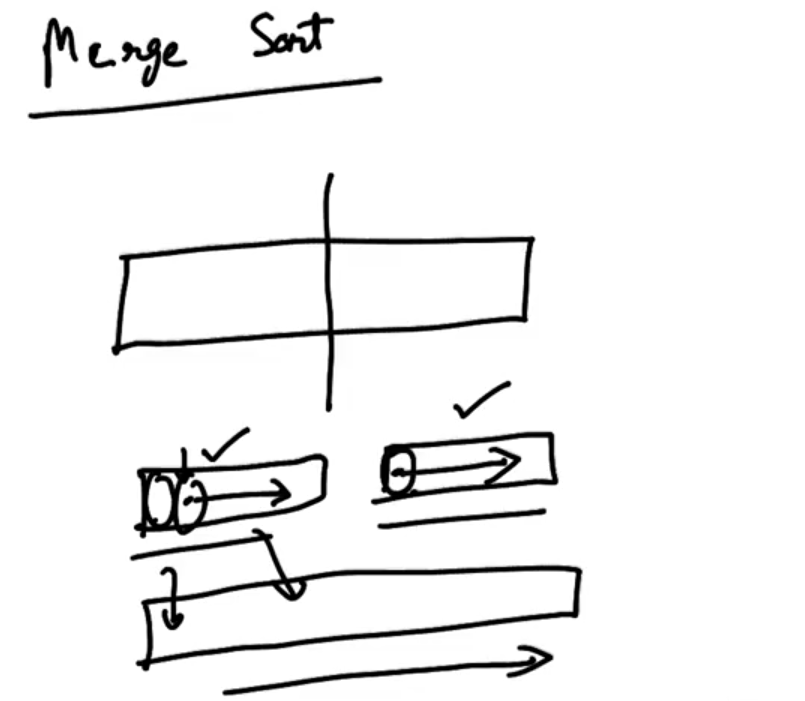 Merge Sort